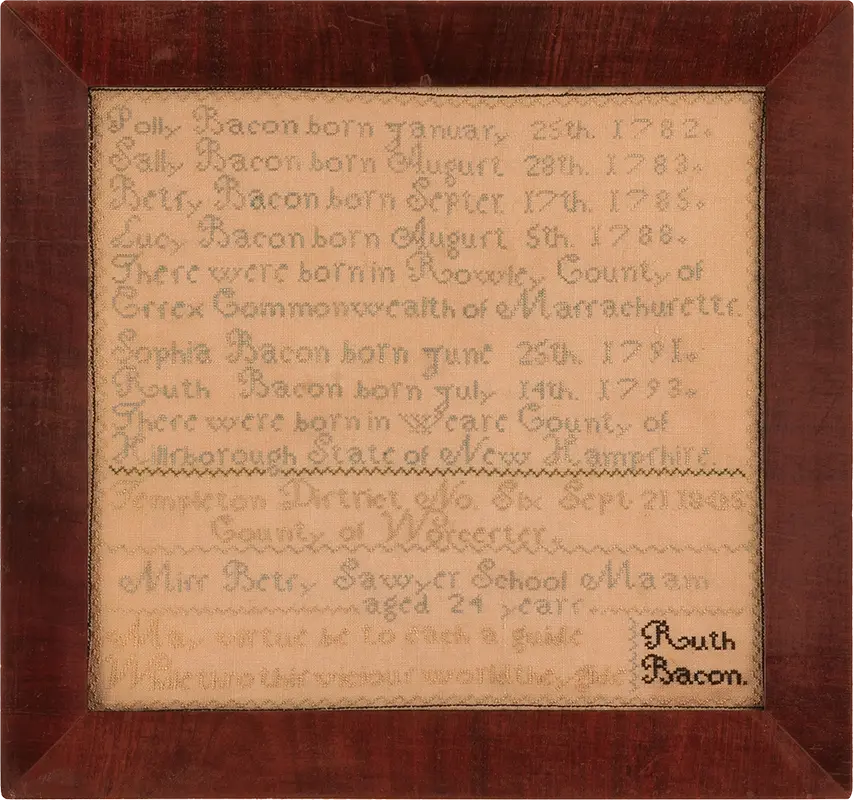 Polly Bacon born January 25th. 1782.
Sally Bacon born Auguſt 28th. 1783.
Betſy Bacon born Septer. 17th. 1785.
Lucy Bacon born Auguſt 5th. 1788.
Theſe were born in Rowley County of
Eſſex Commonwealth of Maſſachuſettſ.
Sophia Bacon born June 25th. 1791.
Ruth Bacon born July 14th. 1793.
Theſe were born in Weare County of
Hillſborough State of New Hampſhire.
Templeton Diſtrict No. Six Sept. 21
County of Worceſter.
Miſſ Betſy Sawyer School Maam
aged 24 yearſ.
May virtue be to each a guide
While thro thiſ viciouſ world they glide
Ruth
Bacon.